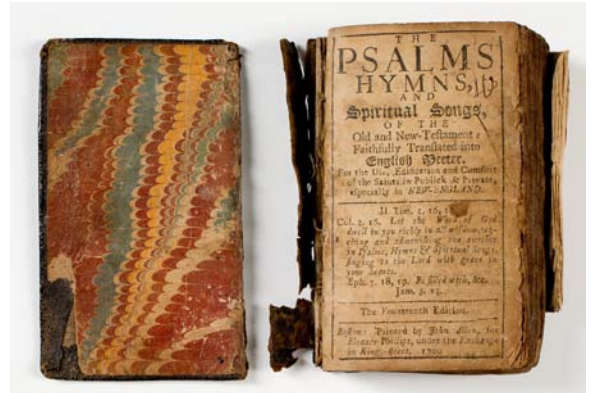 THE
PSALMS
HYMNS,
AND
Spiritual Songs,
OF THE
Old and New-Testament:
Faithfully Translated into
English Meeter.
For the Use, Edification and Comfort
of the Saints in Publick & Private,
especially in NEW-ENGLAND.
II Tim. 3. 16,
Col. 3. 16. Let the Word of God
dwell in you richly in all wisdom, tea-
ching and admonishing one another
in Psalms, Hymns & Spiritual Songs,
singing to the Lord with grace in
your hearts.
Eph. 5. 18, 19. Be filled with, &c.
Jam. 5. 13.
The Fourteenth Edition.
Boston: Printed by John Allen, for
Eleazer Phillips, under the Exchange
in King-street,